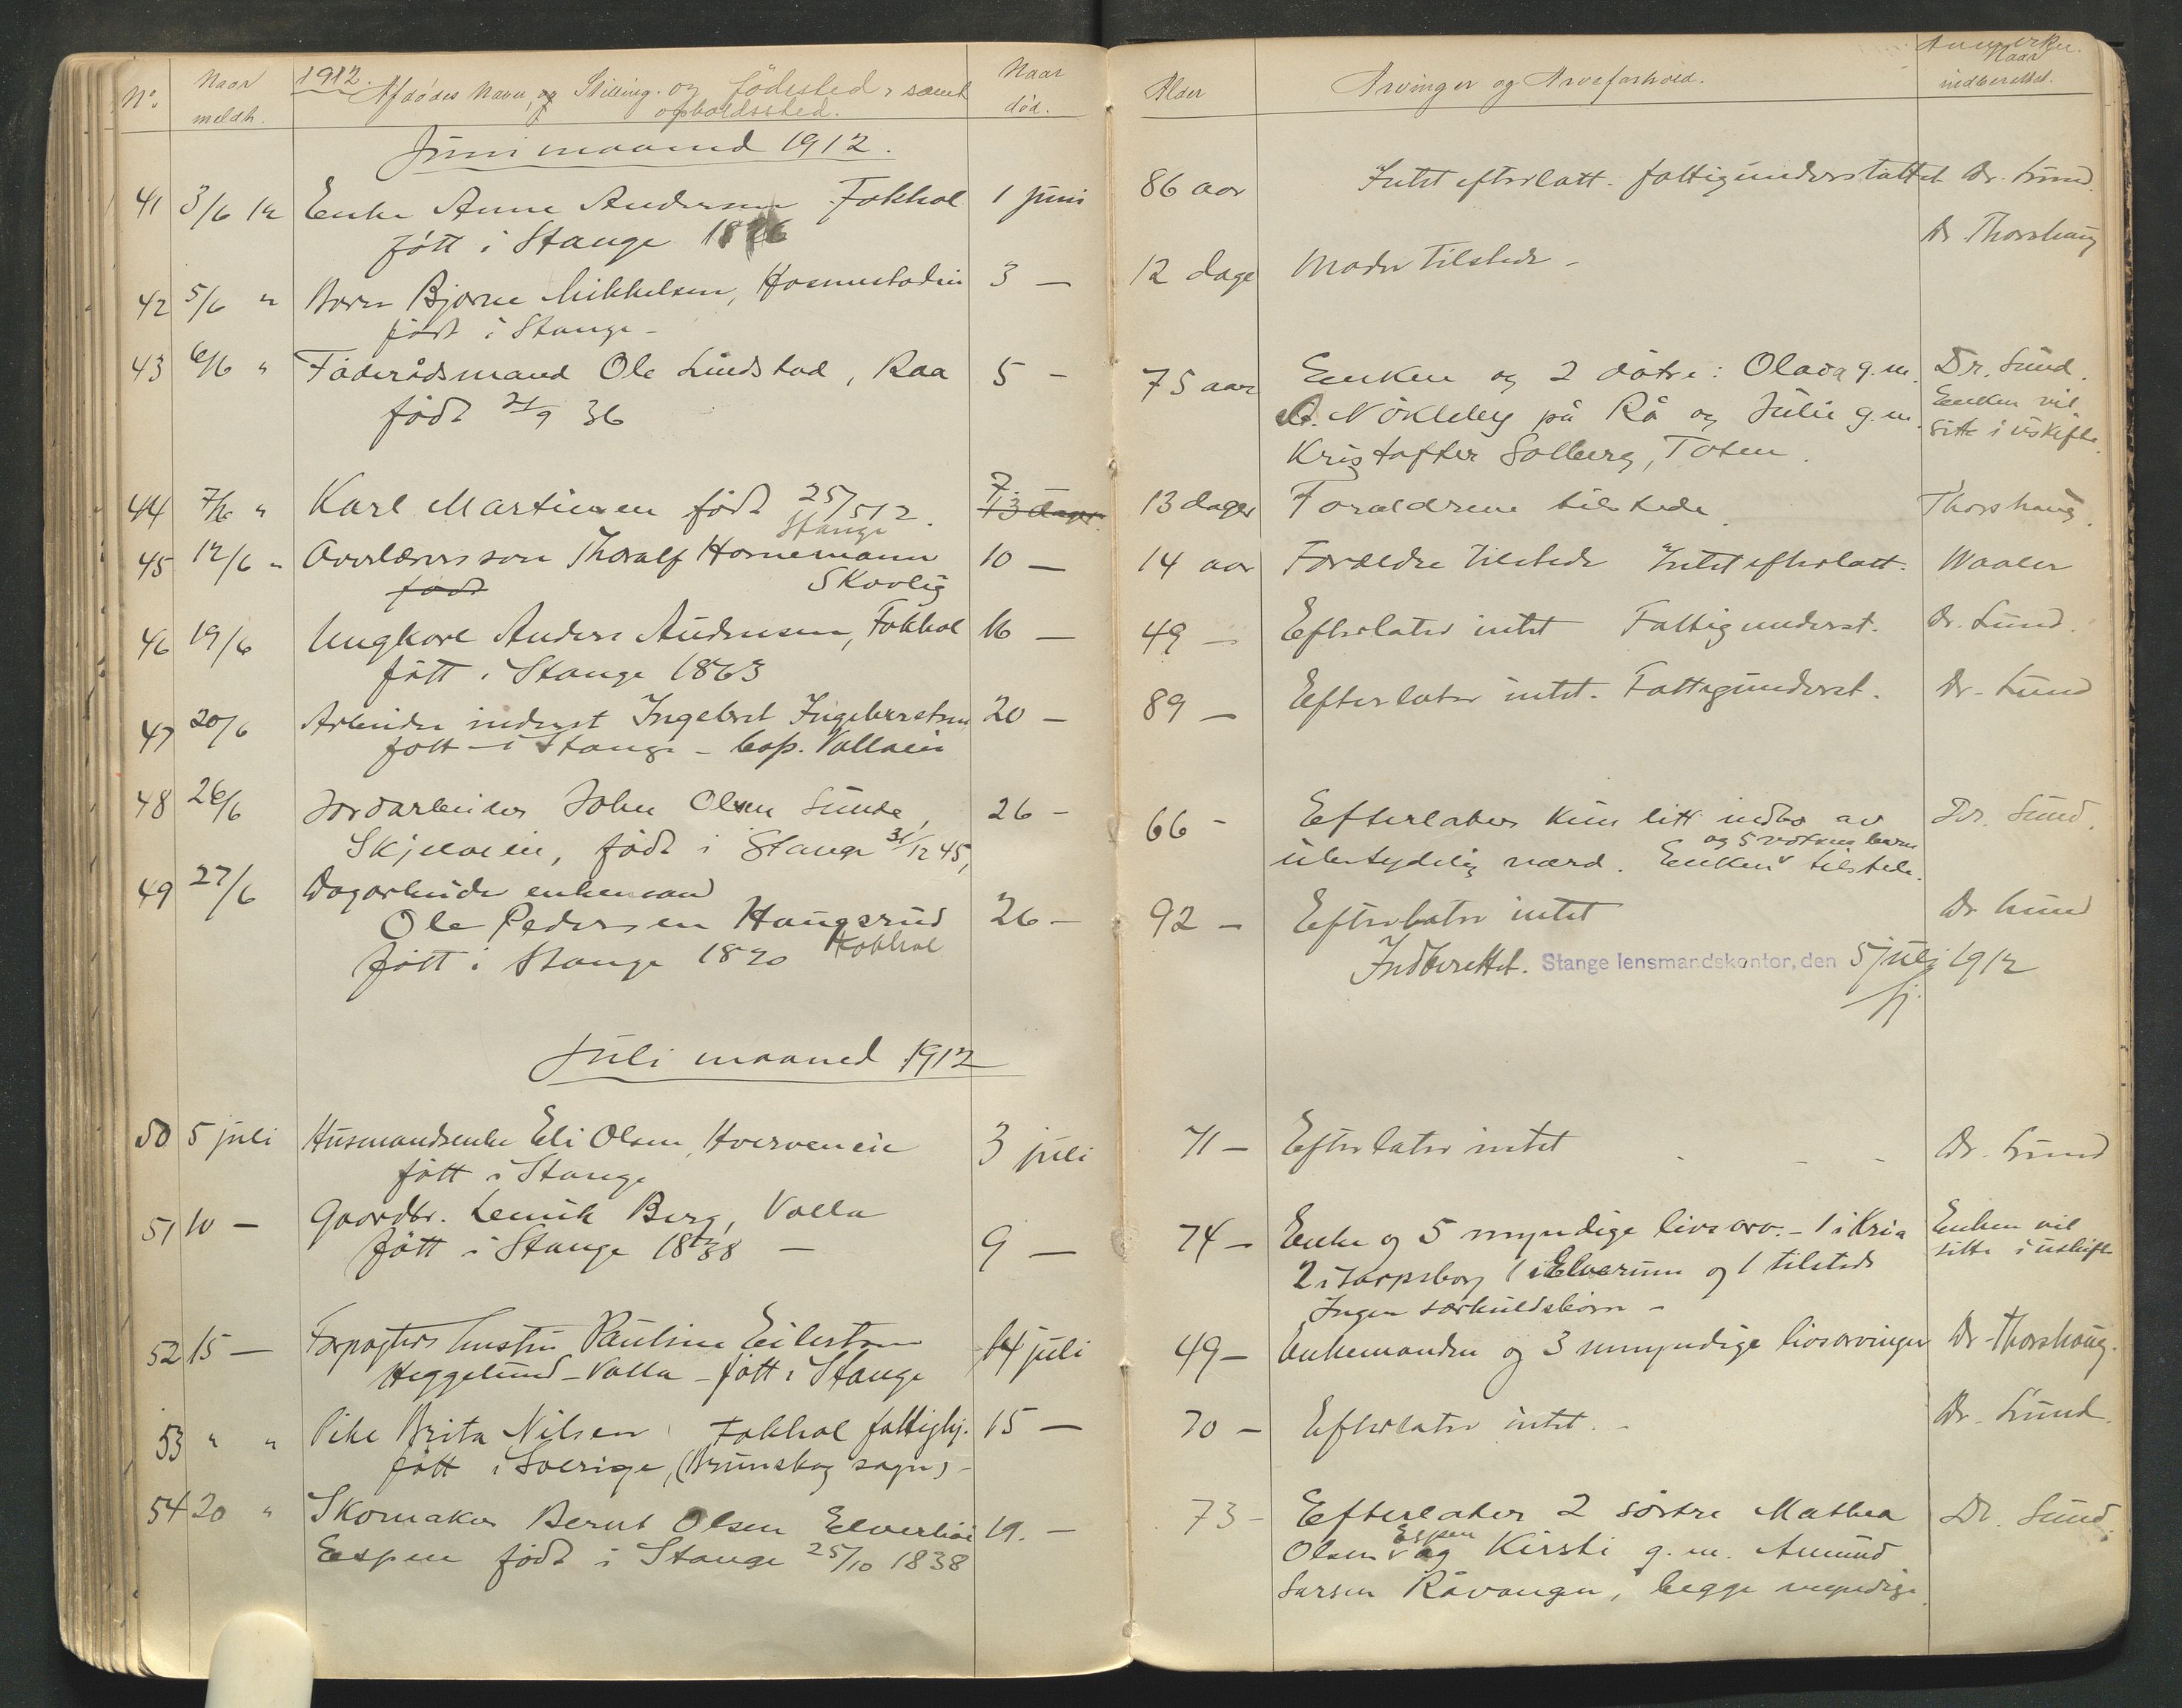 Nº
Naar
meldt.
1912.
Afdødes Navn, og Stilling. og fødested, samt
opholdssted.
Naar
død.
Juni maaned 1912.
41 3/6 12 Enke Anne Andersen Fokhol 1 juni
fött i Stange 1826
42 5/6 " Barn Bjarne Mikkelsen, 3 —
født i Stange -
43 6/6 " Föderådsmand Ole Lindstad, Raa 5 -
født 21/9 36
44 7/6 " Karl Martinsen født 25/5 12. 7. 13 dager
Stange
45 12/6 " Overlærers søn Thoralf Hornemann 10 —
født Skovlig
46 19/6 Ungkarl Anders Andersen, Fokhol 16 —
fött i Stange 1863
47 20/6 Arbeider inderst Ingebret Ingebretsen 20 —
fött i Stange - Vallaeie
48 26/6 Jordarbeider John Olsen Sunde, 26 -
født i Stange 31/12 45,
49 27/6 Dagarbeider enkemand
Ole Pedersen Haugsrud 26 —
Fokhol
fött i Stange 1820
Juli maaned 1912
50 5 juli Husmandsenke Eli Olsen, Hverveneie 3 juli
fött i Stange
51 10 — Gaardbr. Lemik Berg, Valla
fött i Stange 1838 — 9 —
52 15 — Forpagters hustru Pauline Eilertsen 14 juli
Heggelund - Valla - fött i Stange
53 " " Pike Brita Nilsen Fokhol fattighj. 15 —
fött i Sverige, (Brunskog sogn) -
54 20 " Skomaker Bernt Olsen 19. —
Espen født i Stange 25/10 1838
Alder
Arvinger og Arveforhold.
Anmerkn.
Naar
indberettet.
86 aar Intet efterlatt. fattigunderstøttet Dr. Lund.
Dr Thorshaug
12 dage Moder tilstede -
75 aar Enken og 2 døtre: Olava g.m. Dr. Lund.
A. Nökleby på Rå og Julie g.m. Enken vil
Kristoffer Solberg, Toten. sitte i uskifte.
13 dager Forældrene tilstede. Thorshaug.
14 aar Forældre tilstede Intet efterlatt. Waaler
49 — Efterlater intet Fattigunderst. Dr. Lund.
89 — Efterlater intet. Fattigunderst. Dr. Lund
66 - Efterlater kun litt indbo av Dr. Lund.
og 5 voksne barn
ubetydelig værd. Enken tilstede.
92 — Efterlater intet Dr Lund
Indberettet. Stange lensmandskontor, den 5 juli 1912
71 — Efterlater intet - - - Dr. Lund
74 — Enke og 5 myndige livsarv. - 1 i Kria Enken vil
2 i Sarpsborg 1 i Elverum og 1 tilstede sitte i uskifte
Ingen særkuldsbörn -
49 — Enkemanden og 3 umyndige livsarvinger Dr. Thorshaug.
70 - Efterlater intet. - Dr. Lund.
73 - Efterlater 2 søstre Mathea Dr. Lund.
Espen
Olsen og Kirsti g.m. Amund
Larsen Råvangen, begge myndige.